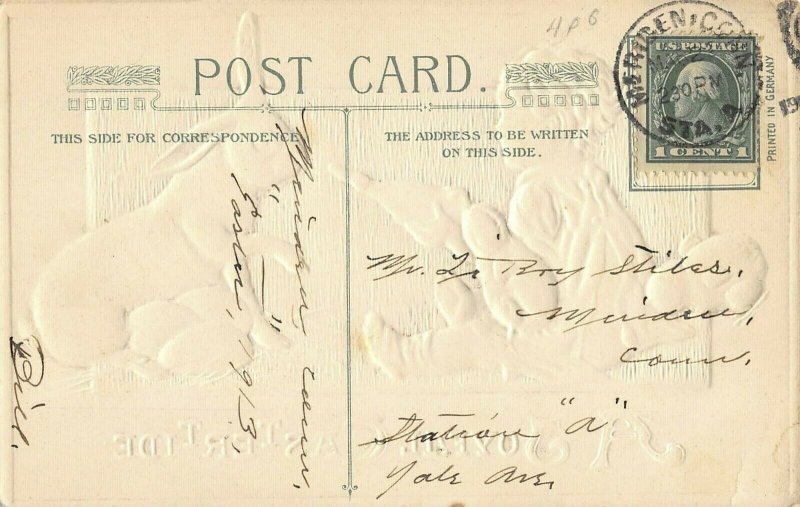 4 p 6
POST CARD.
THIS SIDE FOR CORRESPONDENCE
THE ADDRESS TO BE WRITTEN
ON THIS SIDE.
MERIDEN, CONN.
2 30 PM
STA. A
U.S. POSTAGE
1 CENT 1
PRINTED IN GERMANY
19
Meriden Conn.
" — "
Easter, 1913.
Bill.
Mr. Le Roy Stiles,
Meriden,
Conn.
Station "A"
Yale Ave.
A JOYFUL EASTERTIDE